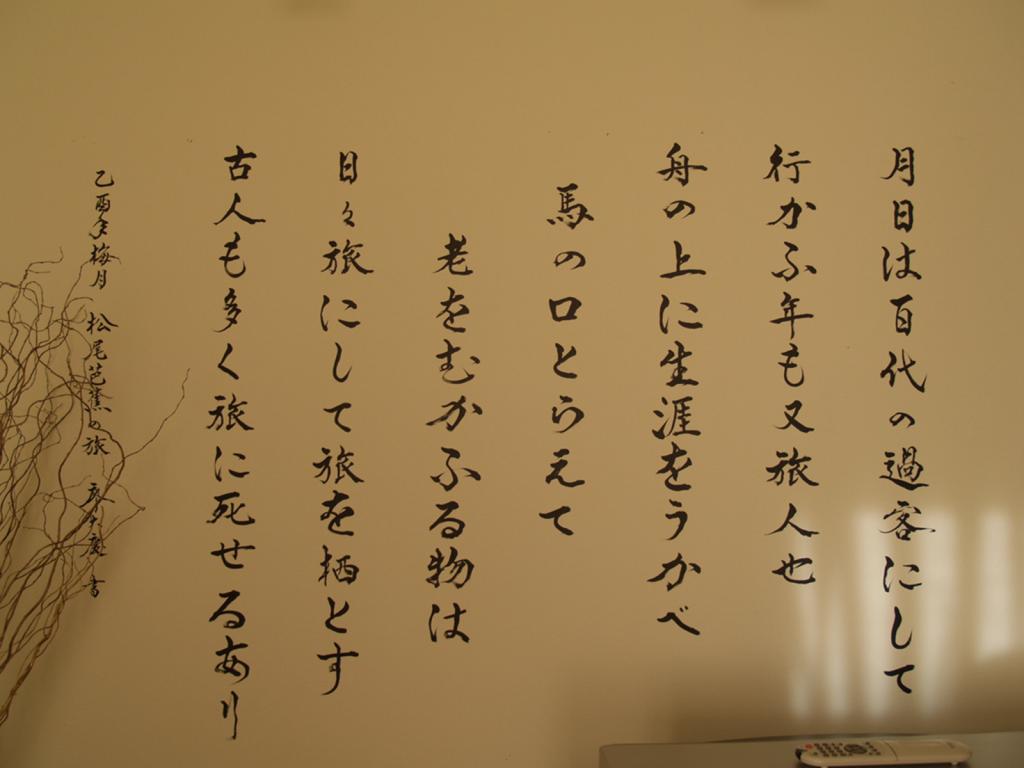 月日は百代の過客にして
行かふ年も又旅人也
舟の上に生涯をうかべ
馬の口とらえて
老をむかふる物は
日々旅にして旅を栖とす
古人も多く旅に死せるあり
乙酉年梅月 松尾芭蕉の旅 書